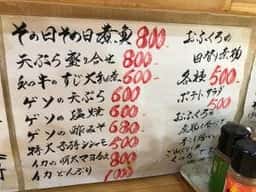 その日その日煮魚 800
天ぷら盛り合せ 800
牛すじ大根煮 600
ゲソの天ぷら 600
ゲソの塩焼 600
ゲソの酢みそ 680
特大子持シシャモ 500
イカの明太マヨあえ 800
イカどんぶり 1000
おふくろの
日替り煮物
各種 500
ポテトサラダ
500
おふくろの